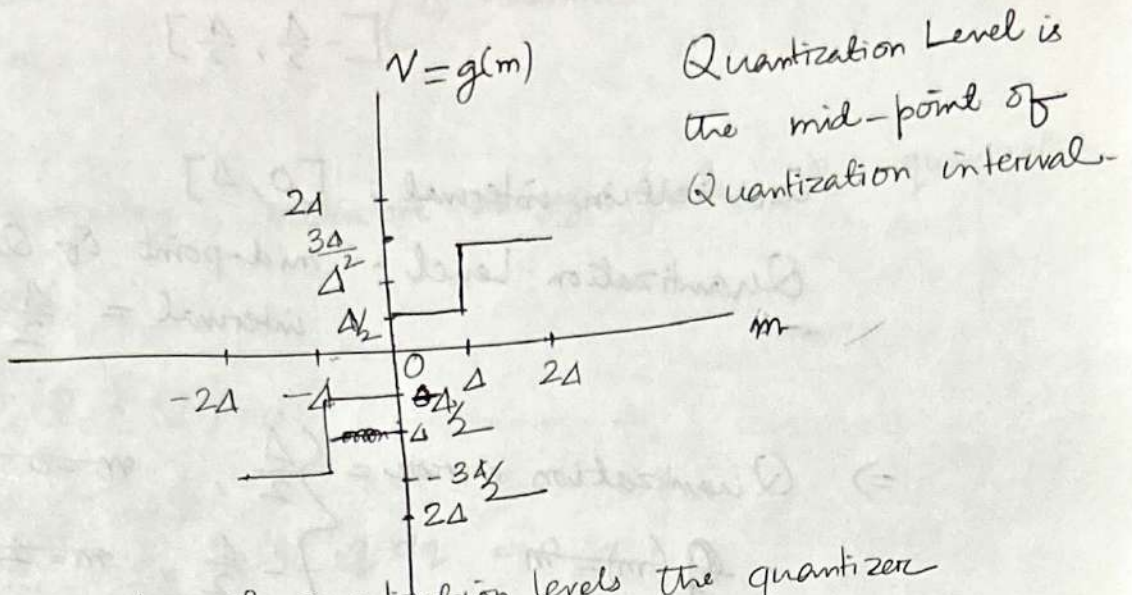 V = g(m)
Quantization Level is
the mid-point of
Quantization interval.
2Δ
3Δ/2
Δ
Δ/2
m
0
Δ
2Δ
-2Δ
-Δ
Δ/2
Δ
-3Δ/2
2Δ
levels the quantizer